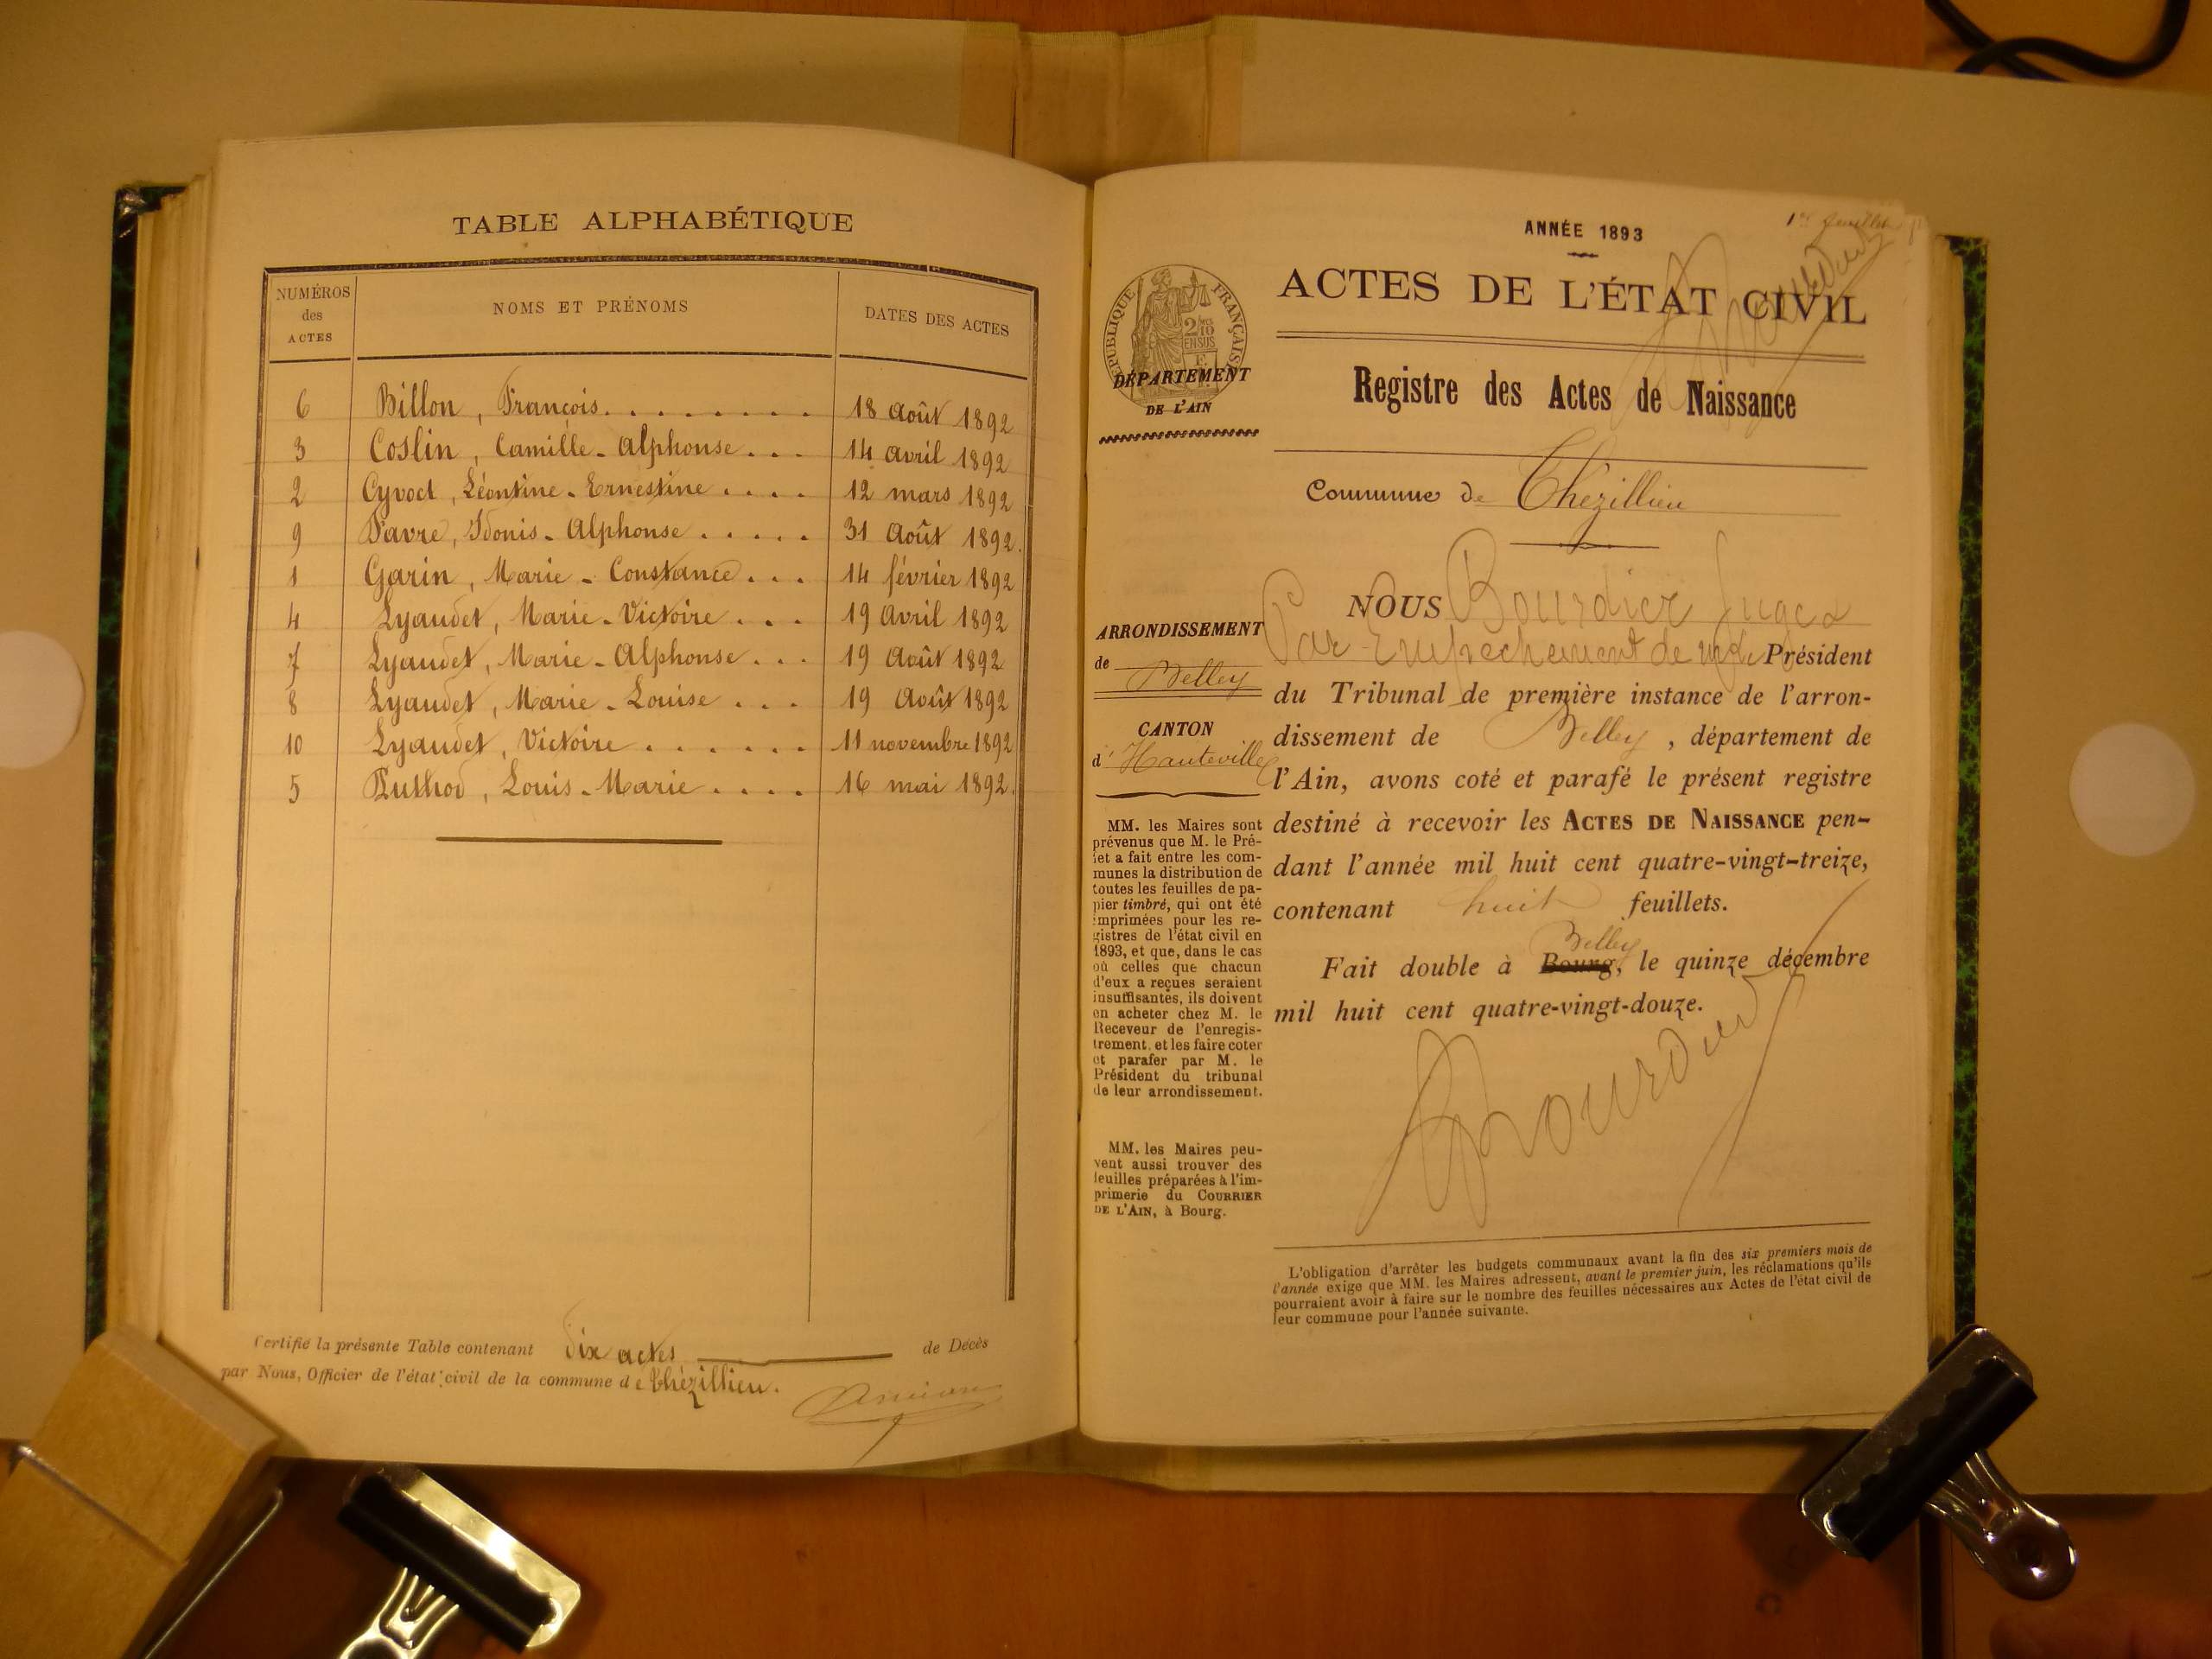 TABLE ALPHABÉTIQUE
NUMÉROS des ACTES
NOMS ET PRÉNOMS
DATES DES ACTES
6 Billon, François. . . . . . . . . 18 août 1892
3 Coslin, Camille-Alphonse . . . 14 avril 1892
2 Cyvoct, Léontine-Ernestine . . . . 12 mars 1892
9 Favre, Idonis-Alphonse . . . . . 31 Août 1892.
1 Garin, Marie-Constance . . . 14 février 1892
4 Lyaudet, Marie-Victoire . . . 19 Avril 1892
7 Lyaudet, Marie-Alphonse . . . 19 Août 1892
8 Lyaudet, Marie-Louise . . . 19 Août 1892
10 Lyaudet, Victoire . . . . . . . 11 novembre 1892
5 Puthod, Louis-Marie . . . . 16 mai 1892.
Certifié la présente Table contenant Dix actes de Décès
par Nous, Officier de l'état civil de la commune de Thézillieu.
1er feuillet
ANNÉE 1893
ACTES DE L'ÉTAT CIVIL
RÉPUBLIQUE FRANÇAISE
2/10 EN SUS
DÉPARTEMENT
DE L'AIN
Registre des Actes de Naissance
Commune de Thézillieu
ARRONDISSEMENT
de Belley
CANTON
d'Hauteville
MM. les Maires sont
prévenus que M. le Pré-
fet a fait entre les com-
munes la distribution de
toutes les feuilles de pa-
pier timbré, qui ont été
imprimées pour les re-
gistres de l'état civil en
1893, et que, dans le cas
où celles que chacun
d'eux a reçues seraient
insuffisantes, ils doivent
en acheter chez M. le
Receveur de l'enregis-
trement. et les faire coter
et parafer par M. le
Président du tribunal
de leur arrondissement.
MM. les Maires peu-
vent aussi trouver des
feuilles préparées à l'im-
primerie du COURRIER
DE L'AIN, à Bourg.
NOUS Bourdier Juge
Par Empechement de Mr le Président
du Tribunal de première instance de l'arron-
dissement de Belley, département de
l'Ain, avons coté et parafé le présent registre
destiné à recevoir les ACTES DE NAISSANCE pen-
dant l'année mil huit cent quatre-vingt-treize,
contenant huit feuillets.
Belley
Fait double à Bourg, le quinze décembre
mil huit cent quatre-vingt-douze.
Bourdier
L'obligation d'arrêter les budgets communaux avant la fin des six premiers mois de
l'année exige que MM. les Maires adressent, avant le premier juin, les réclamations qu'ils
pourraient avoir à faire sur le nombre des feuilles nécessaires aux Actes de l'état civil de
leur commune pour l'année suivante.